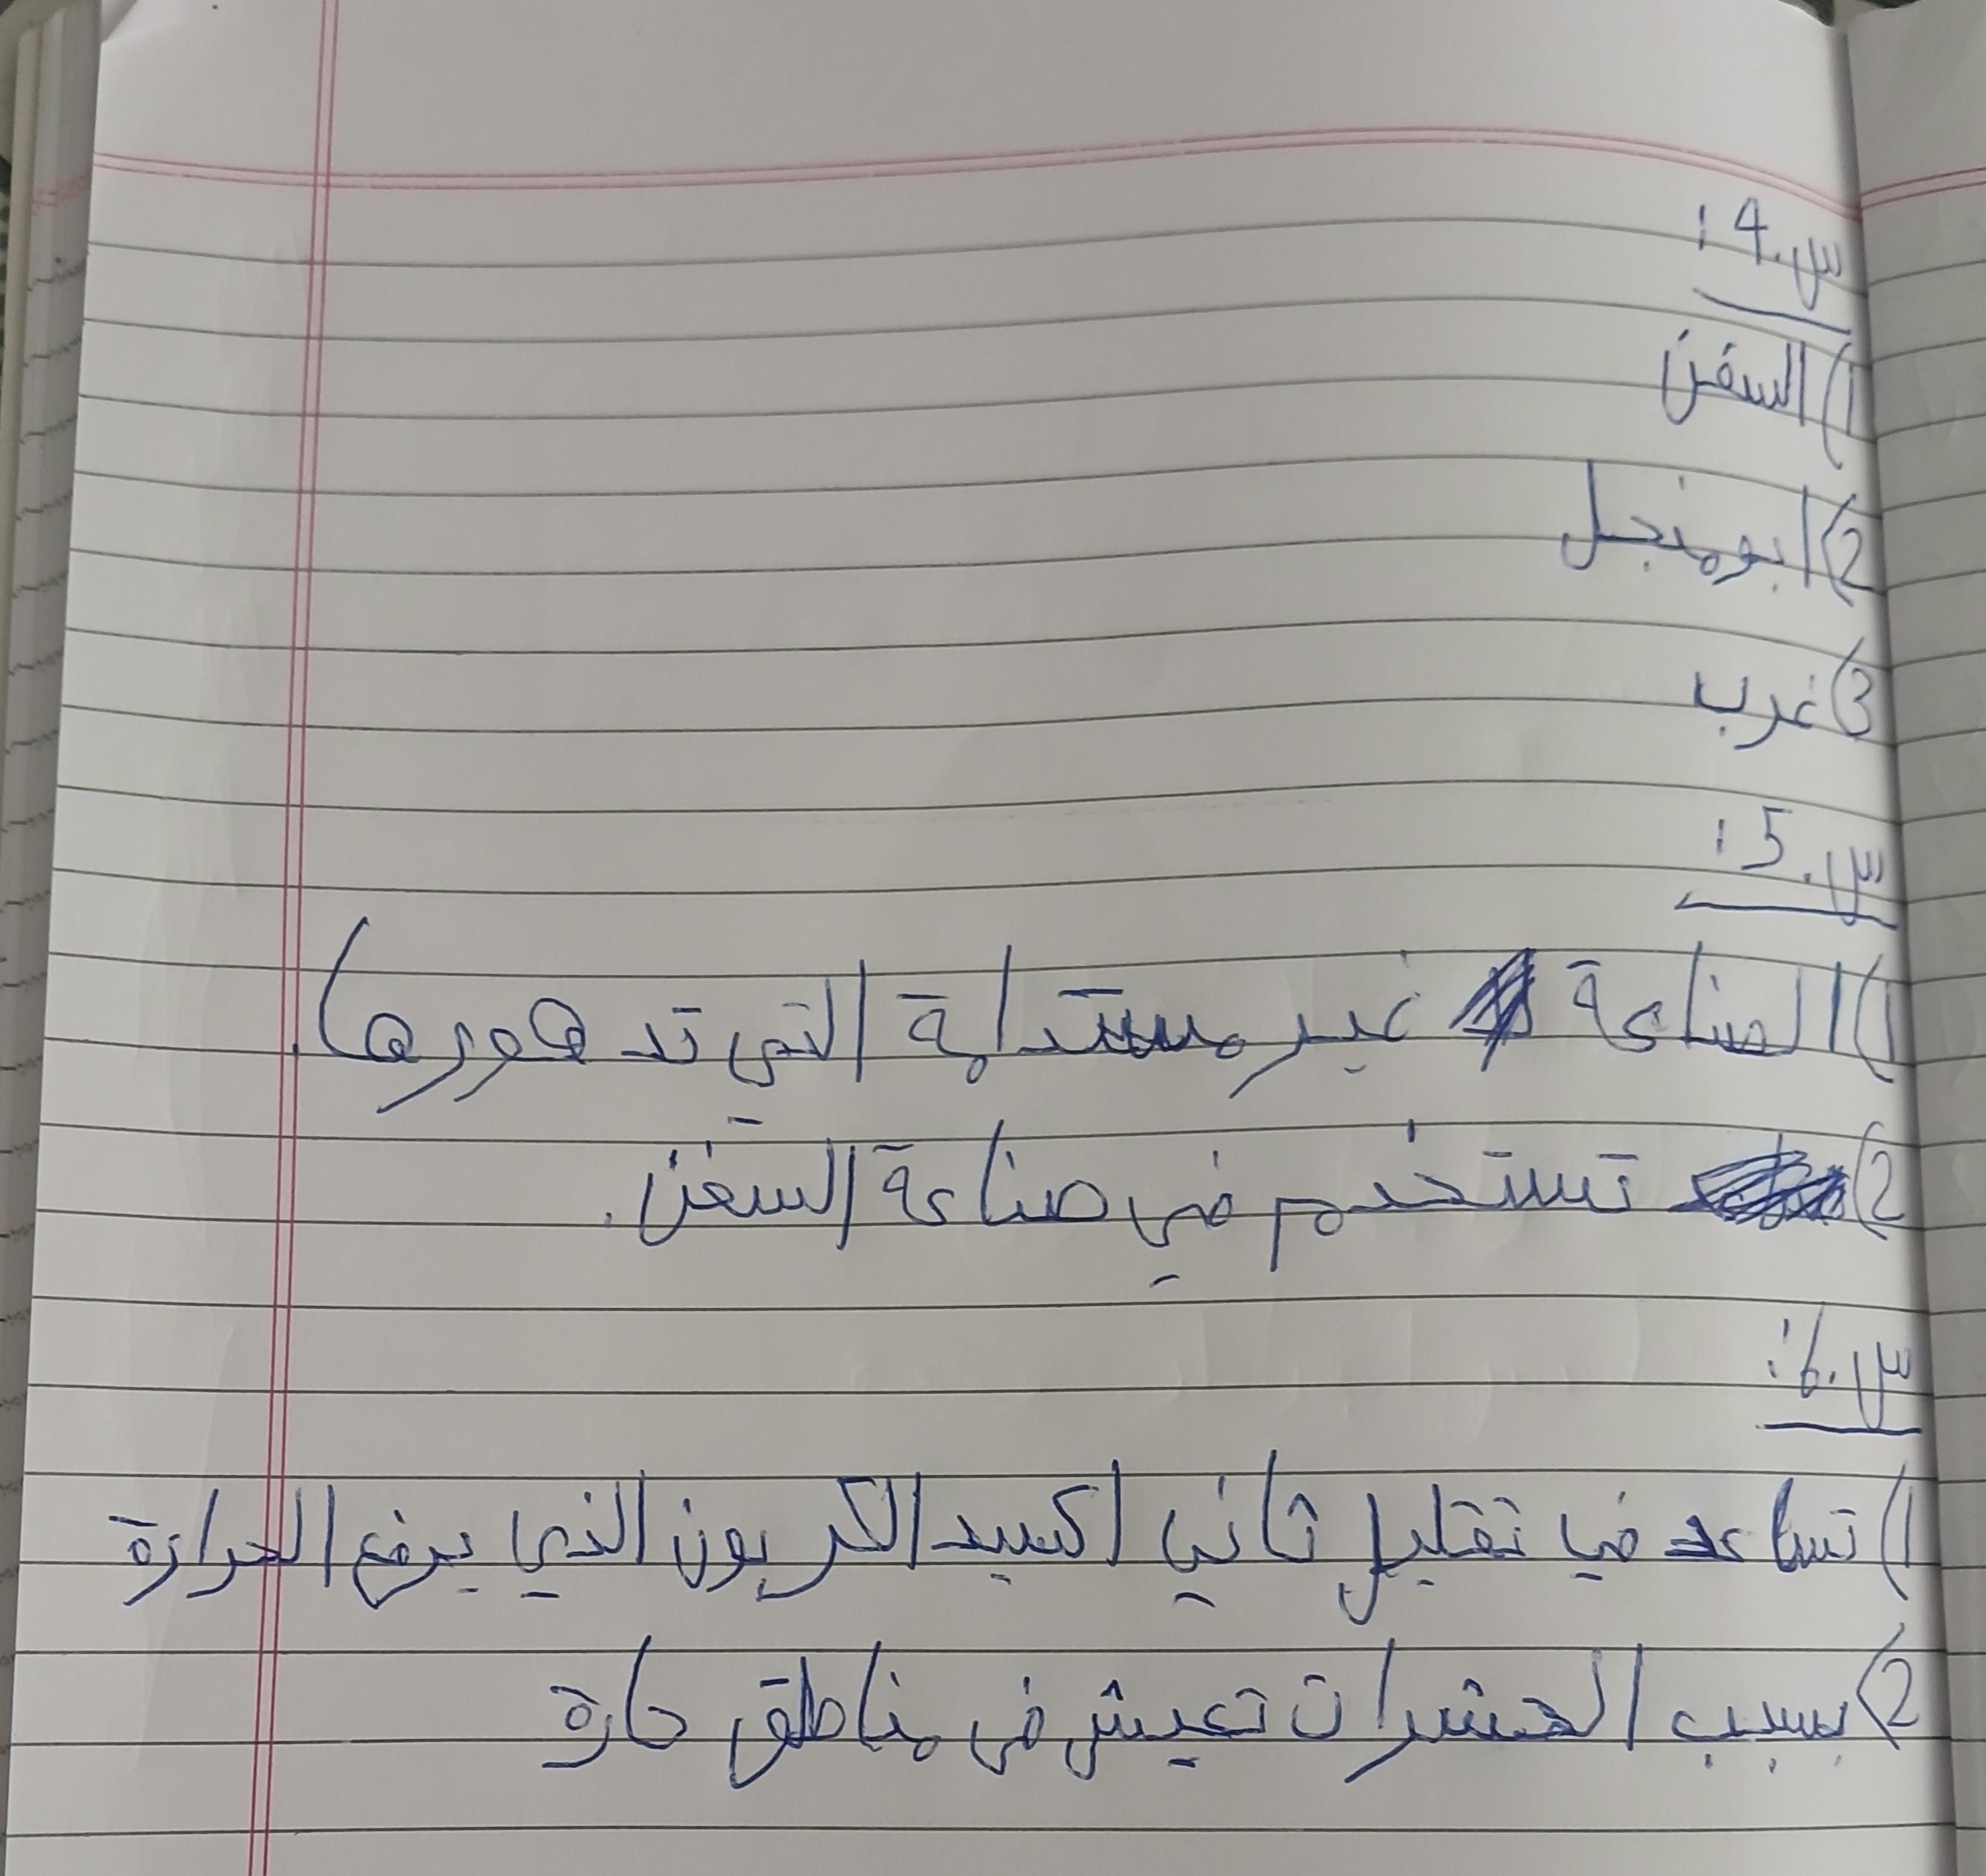 س.4:
1) السفن
2) ابو منجل
3) غرب
س.5:
1) الصناعة غير مستدامة التي تدهورها.
2) تستخدم في صناعة السفن.
س.6:
1) تساعد في تقليل ثاني اكسيد الكربون الذي يرفع الحرارة
2) بسبب الحشرات تعيش في مناطق حارة